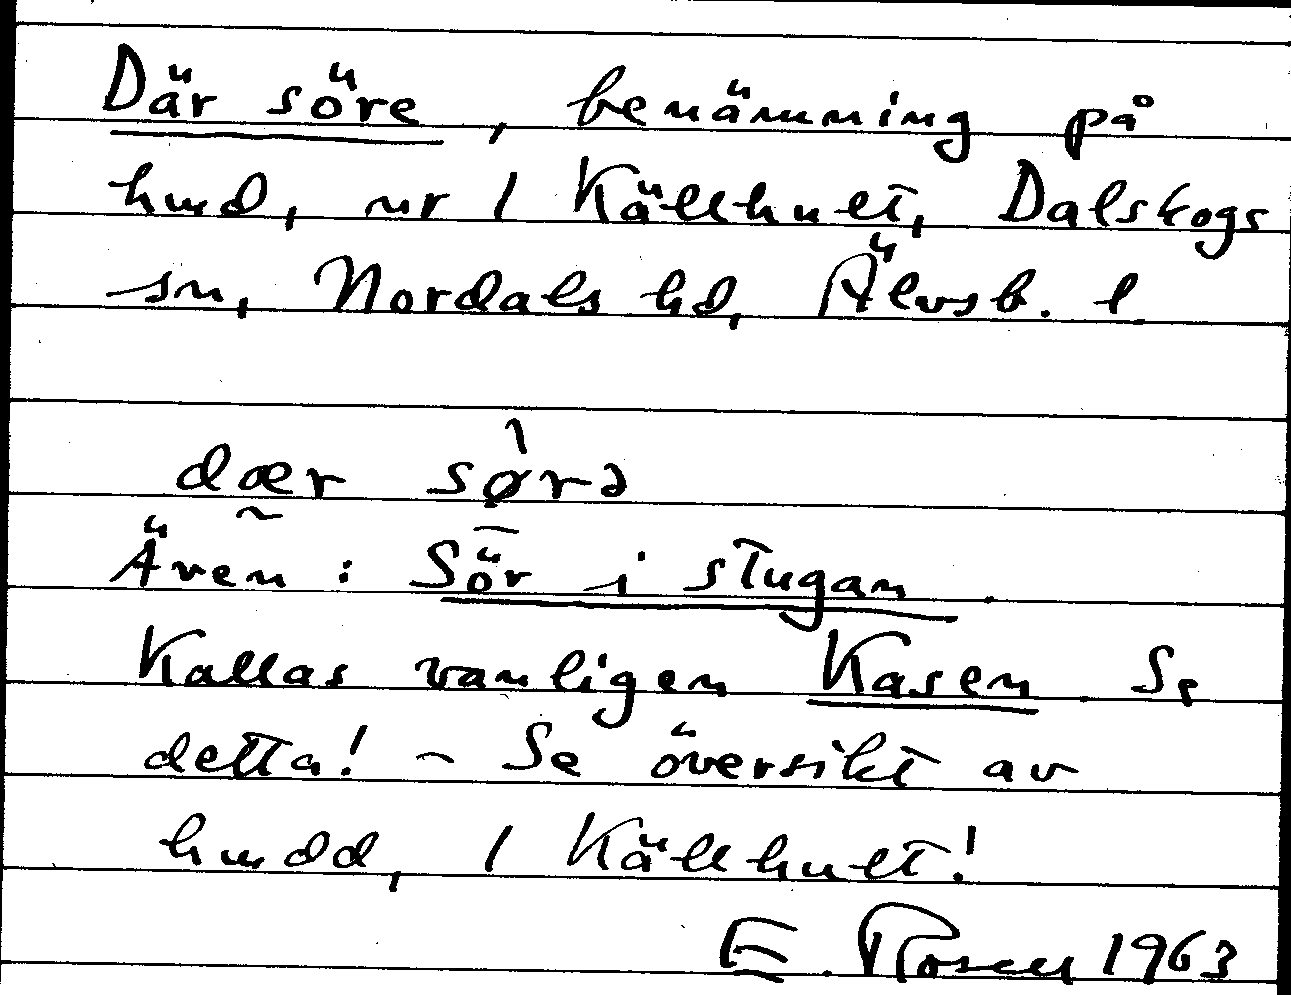 Där söre, benämning på
hmd, nr 1 Källhult, Dalskogs
sn, Nordals hd, Älvsb. l.
dær sørə
Även: Sör i stugan.
Kallas vanligen Kasen. Se
detta! - Se översikt av
hmdd, 1 Källhult!
E. Rosen 1963